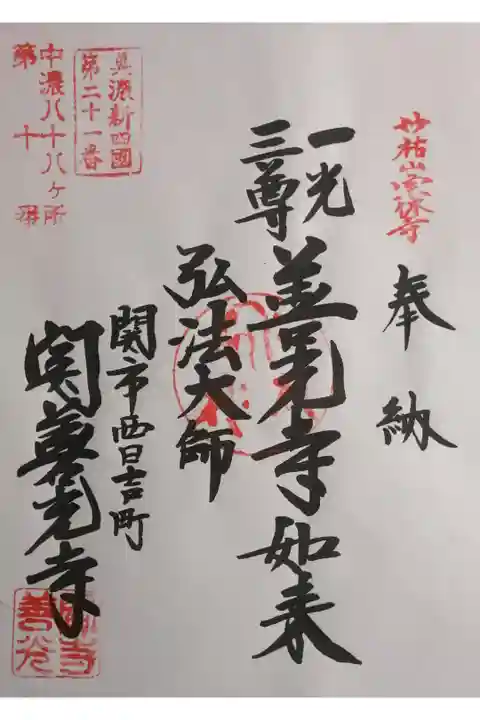 妙祐山宗休寺
奉納
一光
三尊
善光寺如来
弘法大師
関市西日吉町
関善光寺
美濃新四國
第二十一番
中濃八十八ヶ所
第十
善光